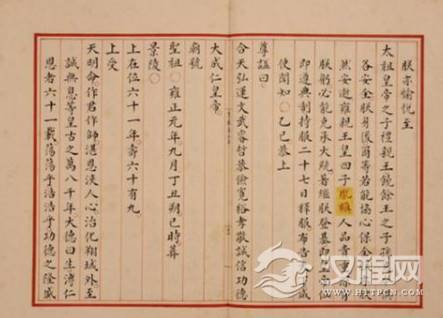 朕亦愉悦至
太祖皇帝之子禮親王饒餘王之子孫現在
各安全朕身後爾等若能協心保全朕亦欣
然安逝雍親王皇四子胤禛人品貴重深肖
朕躬必能克承大統著繼朕登基即皇帝位
即遵典制持服二十七日釋服布告中外咸
使聞知○乙巳恭上
尊諡曰
合天弘運文武睿哲恭儉寬裕孝敬誠信功德
大成仁皇帝
廟號
聖祖○雍正元年九月丁丑朔巳時葬
景陵○
上在位六十一年壽六十有九
上受
天明命作君作師湛恩浹人心治化翔域外至
誠無息等皇古之萬八千年大德曰生溥仁
恩者六十一載蕩蕩乎浩浩乎功德之隆咸
汉程网
HTTPCN.COM